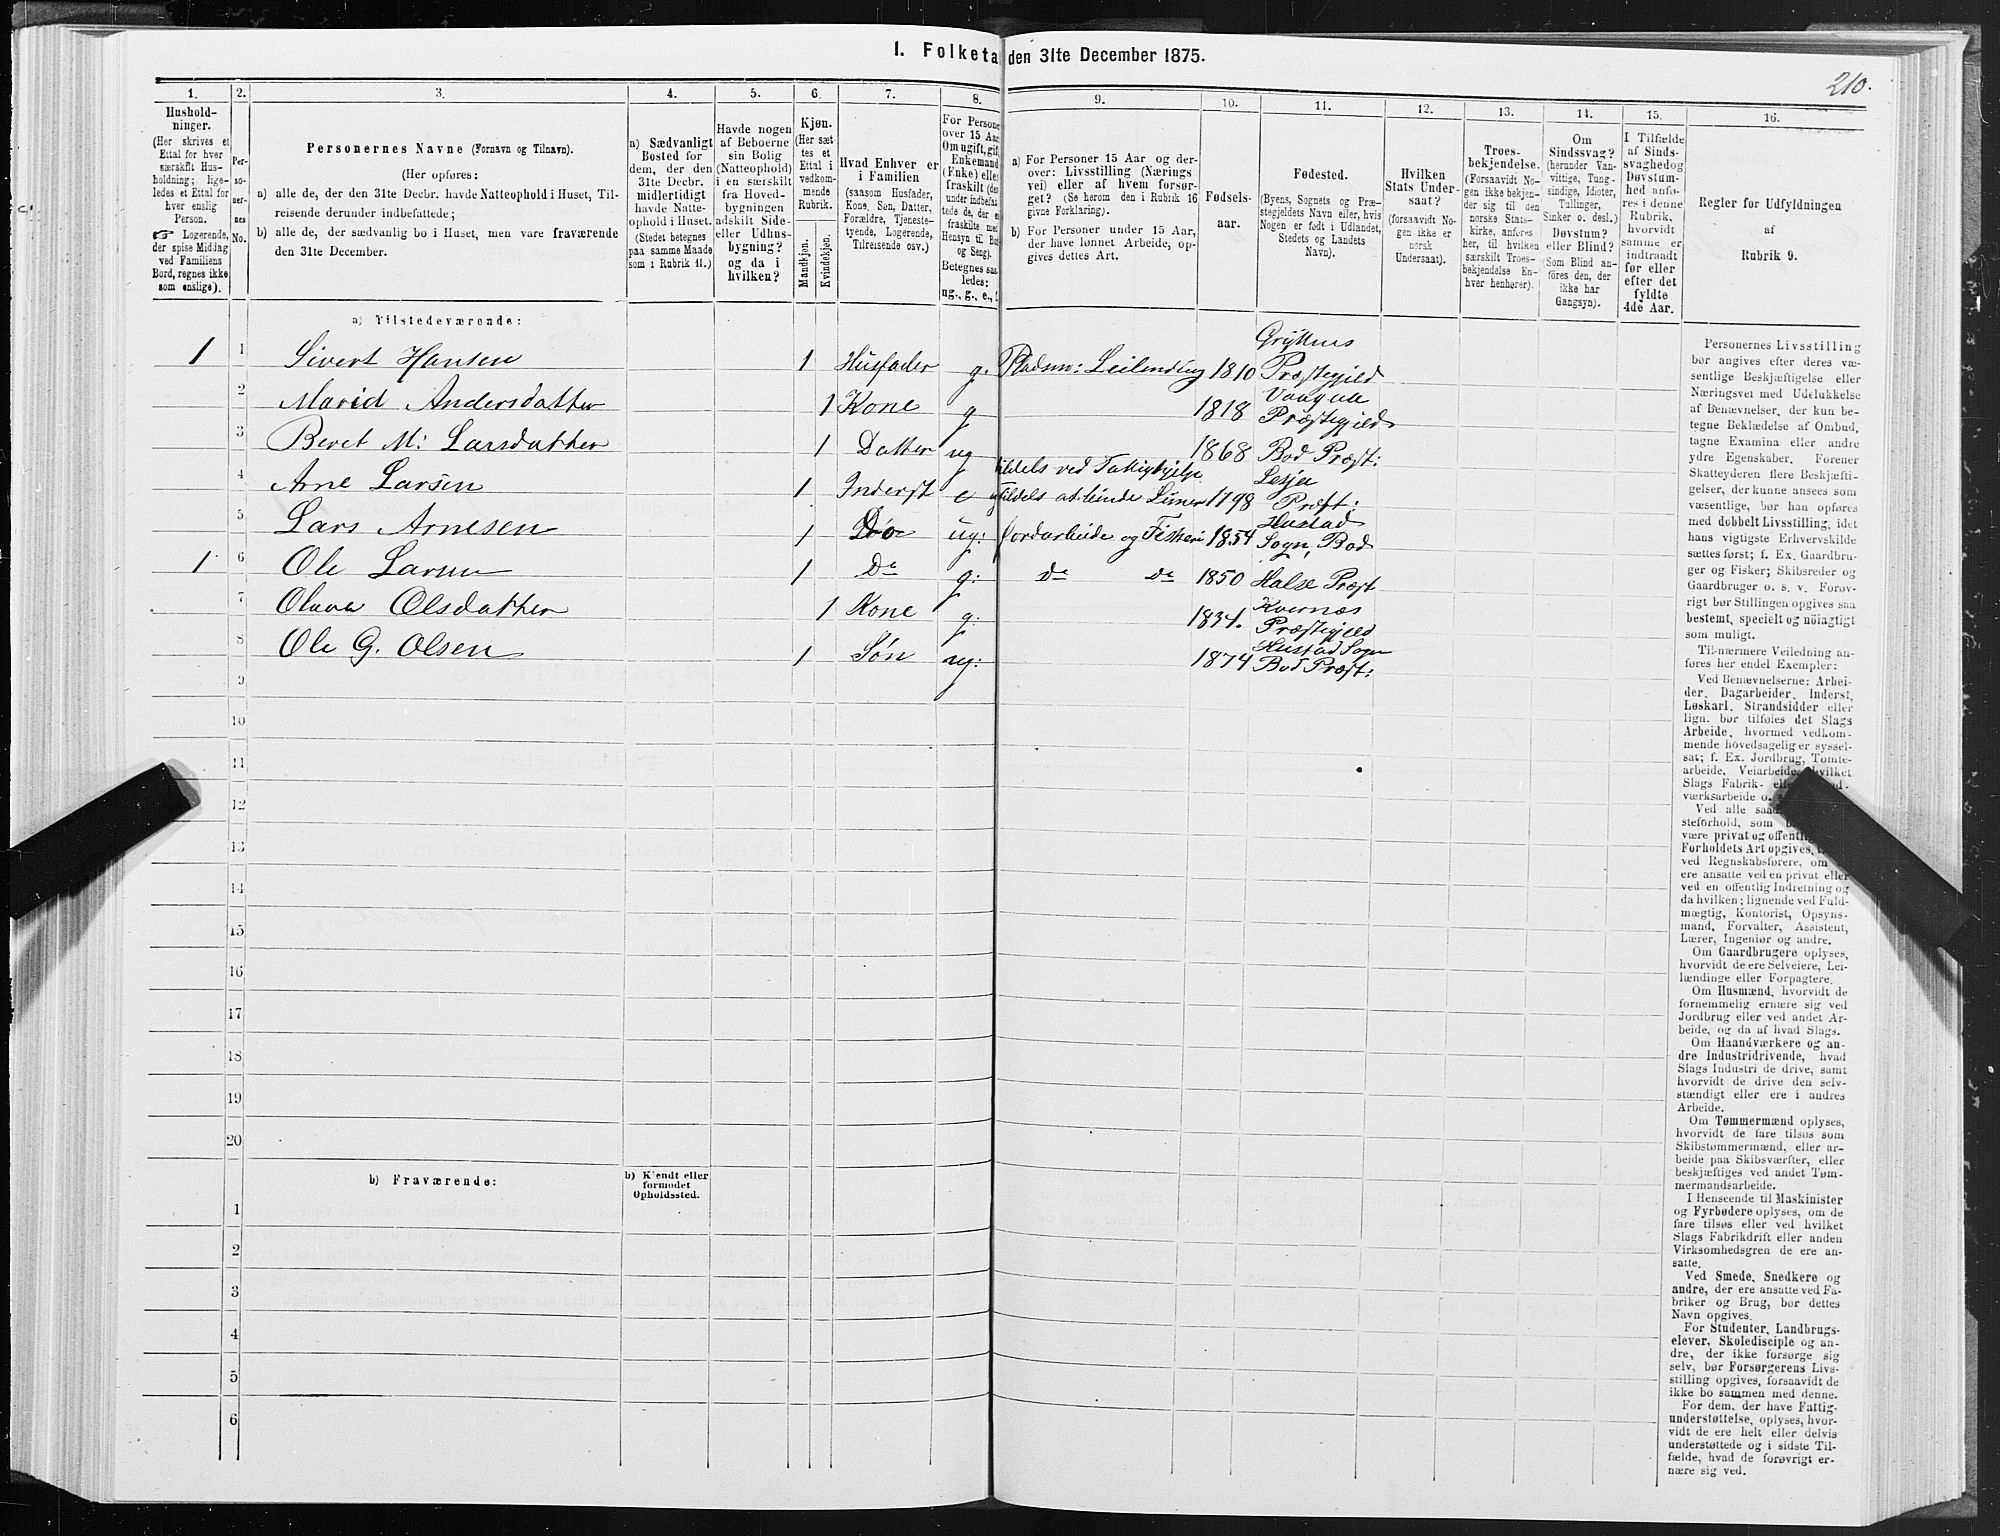 I. Folketæ den 31te December 1875.
210.
1.
Hushold-
ninger.
(Her skrives et
Ettal for hver
særskilt Hus-
holdning; lige-
ledes et Ettal for
hver enslig
Person.
☞ Logerende,
der spise Middag
ved Familiens
Bord, regnes ikke
som enslige).
2.
Per-
so-
ner-
nes
No.
3.
Personernes Navne (Fornavn og Tilnavn).
(Her opføres:
a) alle de, der den 31te Decbr. havde Natteophold i Huset, Til-
reisende derunder indbefattede;
b) alle de, der sædvanlig bo i Huset, men vare fraværende
den 31te December.
4.
a) Sædvanligt
Bosted for
dem, der den
31te Decbr.
midlertidigt
havde Natte-
ophold i Huset.
(Stedet betegnes
paa samme Maade
som i Rubrik 11.)
5.
Havde nogen
af Beboerne
sin Bolig
(Natteophold)
i en særskilt
fra Hoved-
bygningen
adskilt Side-
eller Udhus-
bygning?
og da i
hvilken?
6.
Kjøn.
(Her sæt
tes et
Ettal i
vedkom-
mende
Rubrik.
Mandkjøn.
Kvindekjøn.
7.
Hvad Enhver er
i Familien
(saasom Husfader,
Kone, Søn, Datter,
Forældre, Tjeneste-
tyende, Logerende,
Tilreisende osv.)
8.
For Persone
over 15 Aar
Om ugift, gift,
Enkemand
(Enke) elle
fraskilt (de
under indbefat
tede de, der e
fraskilte med
Hensyn til Bo
og Seng).
Betegnes saa
ledes:
ug., g., e.,
9.
a) For Personer 15 Aar og der-
over: Livsstilling (Nærings
vei) eller af hvem forsør-
get? (Se herom den i Rubrik 16
givne Forklaring).
b) For Personer under 15 Aar,
der have lønnet Arbeide, op-
gives dettes Art.
10.
Fødsels-
aar.
11.
Fødested.
(Byens, Sognets og Præ-
stegjeldets Navn eller, hvis
Nogen er født i Udlandet,
Stedets og Landets
Navn).
12.
Hvilken
Stats Under-
saat?
(forsaavidt No-
gen ikke er
norsk
Undersaat).
13.
Troes-
bekjendelse.
(Forsaavidt No-
gen ikke bekjen-
der sig til den
norske Stats-
kirke, anføres
her, til hvilken
særskilt Troes-
bekjendelse En-
hver henhører).
14.
Om
Sindssvag?
(herunder Van-
vittige, Tung-
sindige, Idioter,
Tullinger,
Sinker o. desl.)
Døvstum?
eller Blind?
(Som Blind an-
føres den, der
ikke har
Gangsyn).
15.
I Tilfælde
af Sinds-
svaghed og
Døvstum-
hed anfø-
res i denne
Rubrik,
hvorvidt
samme er
indtraadt
før eller
efter det
fyldte
4de Aar.
16.
Regler for Udfyldningen
af
Rubrik 9.
a) Tilstedeværende:
1 1 Sivert Hansen 1 Husfader g. Pladsm: Leilending 1810 Grÿttens Præstegjeld
2 Marid Andersdatter 1 Kone g 1818 Vaagua Præstegjeld
3 Beret M: Larsdatter 1 Datter ug 1868 Bod Præst:
4 Arne Larsen 1 Inderst e tildels ved Fattighjelp tildels at binde Liiner 1798 Lesje Præst:
5 Lars Arnesen 1 Do ug: Jordarbeide og Fiskeri 1854 Hustad Sogn, Bod
1 6 Ole Larsen 1 Do g: do do 1850 Halse Præst
7 Olava Olsdatter 1 Kone g: 1834. Kvernæs Præstegjeld
8 Ole G. Olsen 1 Søn ug: 1874 Hustad Sogn Bod Præst:
9
10
11
12
13
14
15
16
17
18
19
20
b) Fraværende:
b) Kjendt eller
formodet
Opholdssted.
1
2
3
4
5
6
Personernes Livsstilling
bør angives efter deres væ-
sentlige Beskjæftigelse eller
Næringsvei med Udelukkelse
af Benævnelser, der kun be-
tegne Beklædelse af Ombud,
tagne Examina eller andre
ydre Egenskaber. Forener
Skatteyderen flere Beskjæfti-
gelser, der kunne ansees som
væsentlige, bør han opføres
med dobbelt Livsstilling, idet
hans vigtigste Erhvervskilde
sættes først; f. Ex. Gaardbru-
ger og Fisker; Skibsreder og
Gaardbruger o. s. v. Forøv-
rigt bør Stillingen opgives saa
bestemt, specielt og nöiagtigt
som muligt.
Til nærmere Veiledning an-
føres her endel Exempler:
Ved Benævnelserne: Arbei-
der, Dagarbeider, Inderst,
Løskarl, Strandsidder eller
lign. bør tilføies det Slags
Arbeide, hvormed vedkom-
mende hovedsagelig er syssel-
sat; f. Ex. Jordbrug, Tomte-
arbeide, Veiarbeide, hvilket
Slags Fabrik-
værksarbeide o.
Ved alle
steforhold, som
være privat og offent
Forholdets Art opgives,
ved Regnskabsførere, om
ere ansatte ved en privat eller
ved en offentlig Indretning og
da hvilken; lignende ved Fuld-
mægtig, Kontorist, Opsyns-
mand, Forvalter, Assistent,
Lærer, Ingeniør og andre.
Om Gaardbrugere oplyses,
hvorvidt de ere Selveiere, Lei-
lændinge eller Forpagtere.
Om Husmænd, hvorvidt de
fornemmelig ernære sig ved
Jordbrug eller ved andet Ar-
beide, og da af hvad Slags.
Om Haandværkere og an-
dre Industridrivende, hvad
Slags Industri de drive, samt
hvorvidt de drive den selv-
stændigt eller ere i andres
Arbeide.
Om Tømmermænd oplyses,
hvorvidt de fare tilsøs som
Skibstømmermænd, eller ar-
beide paa Skibsværfter, eller
beskjæftiges ved andet Tøm-
mermandsarbeide.
I Henseende til Maskinister
og Fyrbødere oplyses, om de
fare tilsøs eller ved hvilket
Slags Fabrikdrift eller anden
Virksomhedsgren de ere an-
satte.
Ved Smede, Snedkere og
andre, der ere ansatte ved Fa-
briker og Brug, bør dettes
Navn opgives.
For Studenter, Landbrugs-
elever, Skoledisciple og an-
dre, der ikke forsørge sig
selv, bør Forsørgerens Livs-
stilling opgives, forsaavidt de
ikke bo sammen med denne.
For dem, der have Fattig-
understøttelse, oplyses, hvor-
vidt de ere helt eller delvis
understøttede og i sidste Til-
fælde, hvad de forøvrigt er-
nære sig ved.